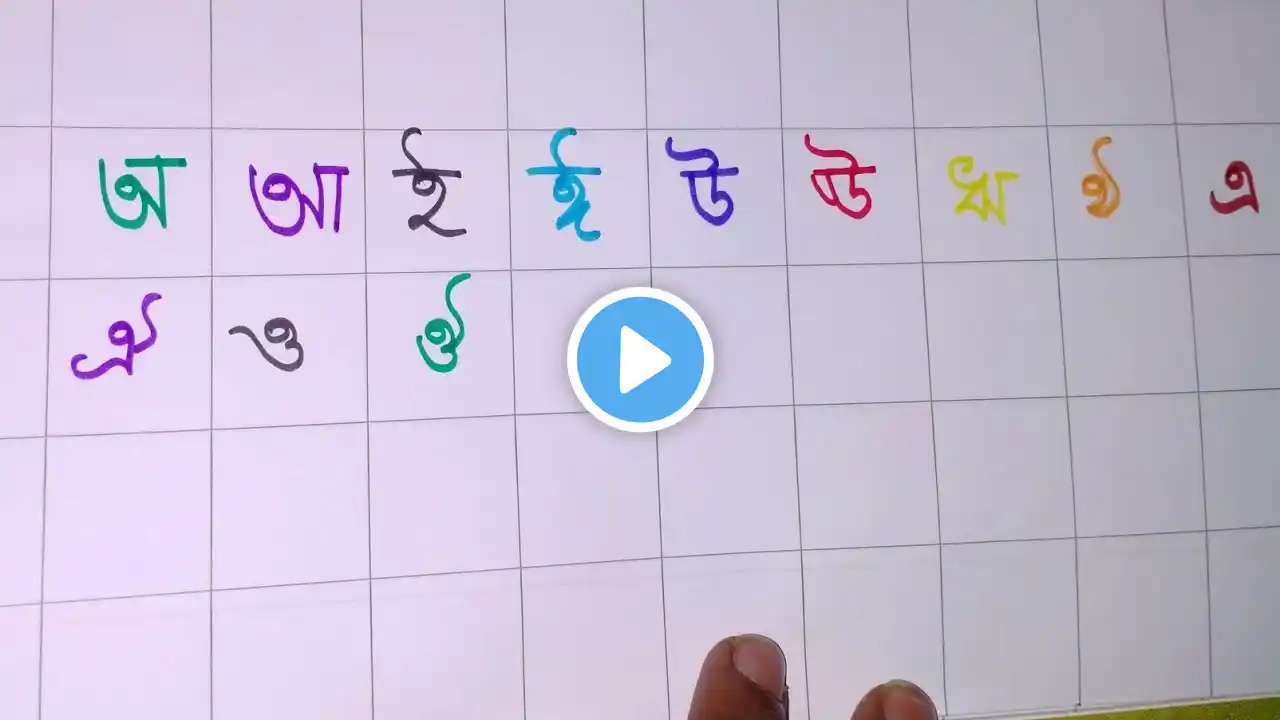 অ আ ই ঈ উ ঊ ঋ এ
ঐ ও ঔ